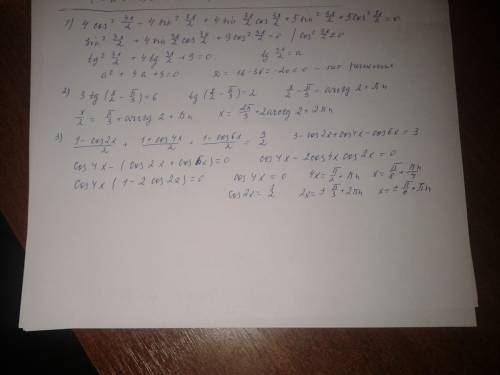 1) 4 cos² 3x/2 - 4 sin² 3x/2 + 4 sin 3x/2 cos 3x/2 + 5 sin² 3x/2 + 5 cos² 3x/2 = 0
sin² 3x/2 + 4 sin 3x/2 cos 3x/2 + 9 cos² 3x/2 = 0 | cos² 3x/2 ≠ 0
tg² 3x/2 + 4 tg 3x/2 + 9 = 0 tg 3x/2 = a
a² + 4a + 9 = 0 = 16 - 36 = -20 < 0 - нет решения
2) 3 tg (x/2 - π/3) = 6 tg (x/2 - π/3) = 2 x/2 - π/3 = arctg 2 + πn
x/2 = π/3 + arctg 2 + πn x = 2π/3 + 2 arctg 2 + 2πn
3) 1 - cos2x/2 + 1 + cos4x/2 + 1 - cos6x/2 = 3/2 3 - cos2x + cos4x - cos6x = 3
cos4x - (cos2x + cos6x) = 0 cos4x - 2cos4x cos2x = 0
cos4x (1 - 2cos2x) = 0 cos4x = 0 4x = π/2 + πn x = π/8 + πn/4
cos2x = 1/2 2x = ± π/3 + 2πn x = ± π/6 + πn